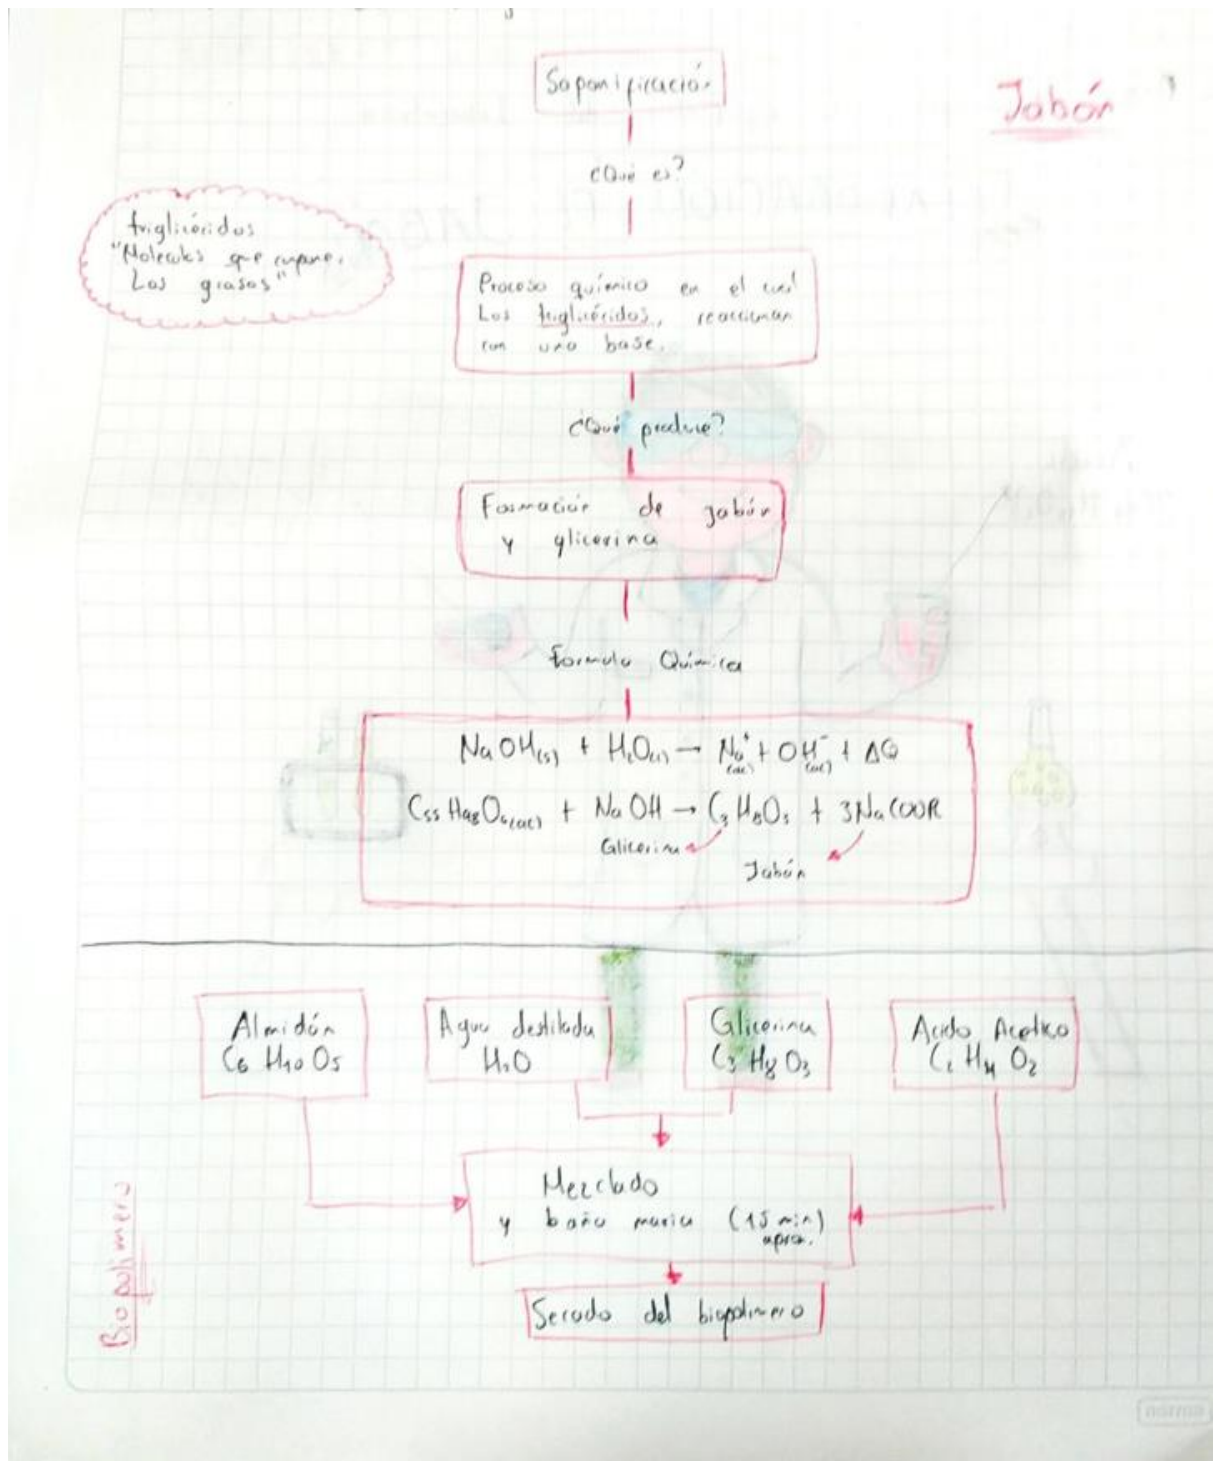 Saponificación
Jabón
¿Qué es?
trigliceridos
"Moleculas que
Las grasas"
Proceso químico en el cual
Los triglicéridos, reaccionan
con una base.
¿Qué produce?
Formación de jabón
y glicerina
Formula Química
NaOH(s) + H₂O(l) → Na⁺(ac) + OH⁻(ac) + ΔQ
C₅₅H₉₈O₆(ac) + NaOH → C₃H₈O₃ + 3NaCOOR
Glicerina
Jabón
Almidón
C₆ H₁₀ O₅
Agua destilada
H₂O
Glicerina
C₃ H₈ O₃
Acido Acetico
C₂ H₄ O₂
Mezclado
y baño maria (15 min)
aprox.
Secado del biopolimero
Biopolimero
norma